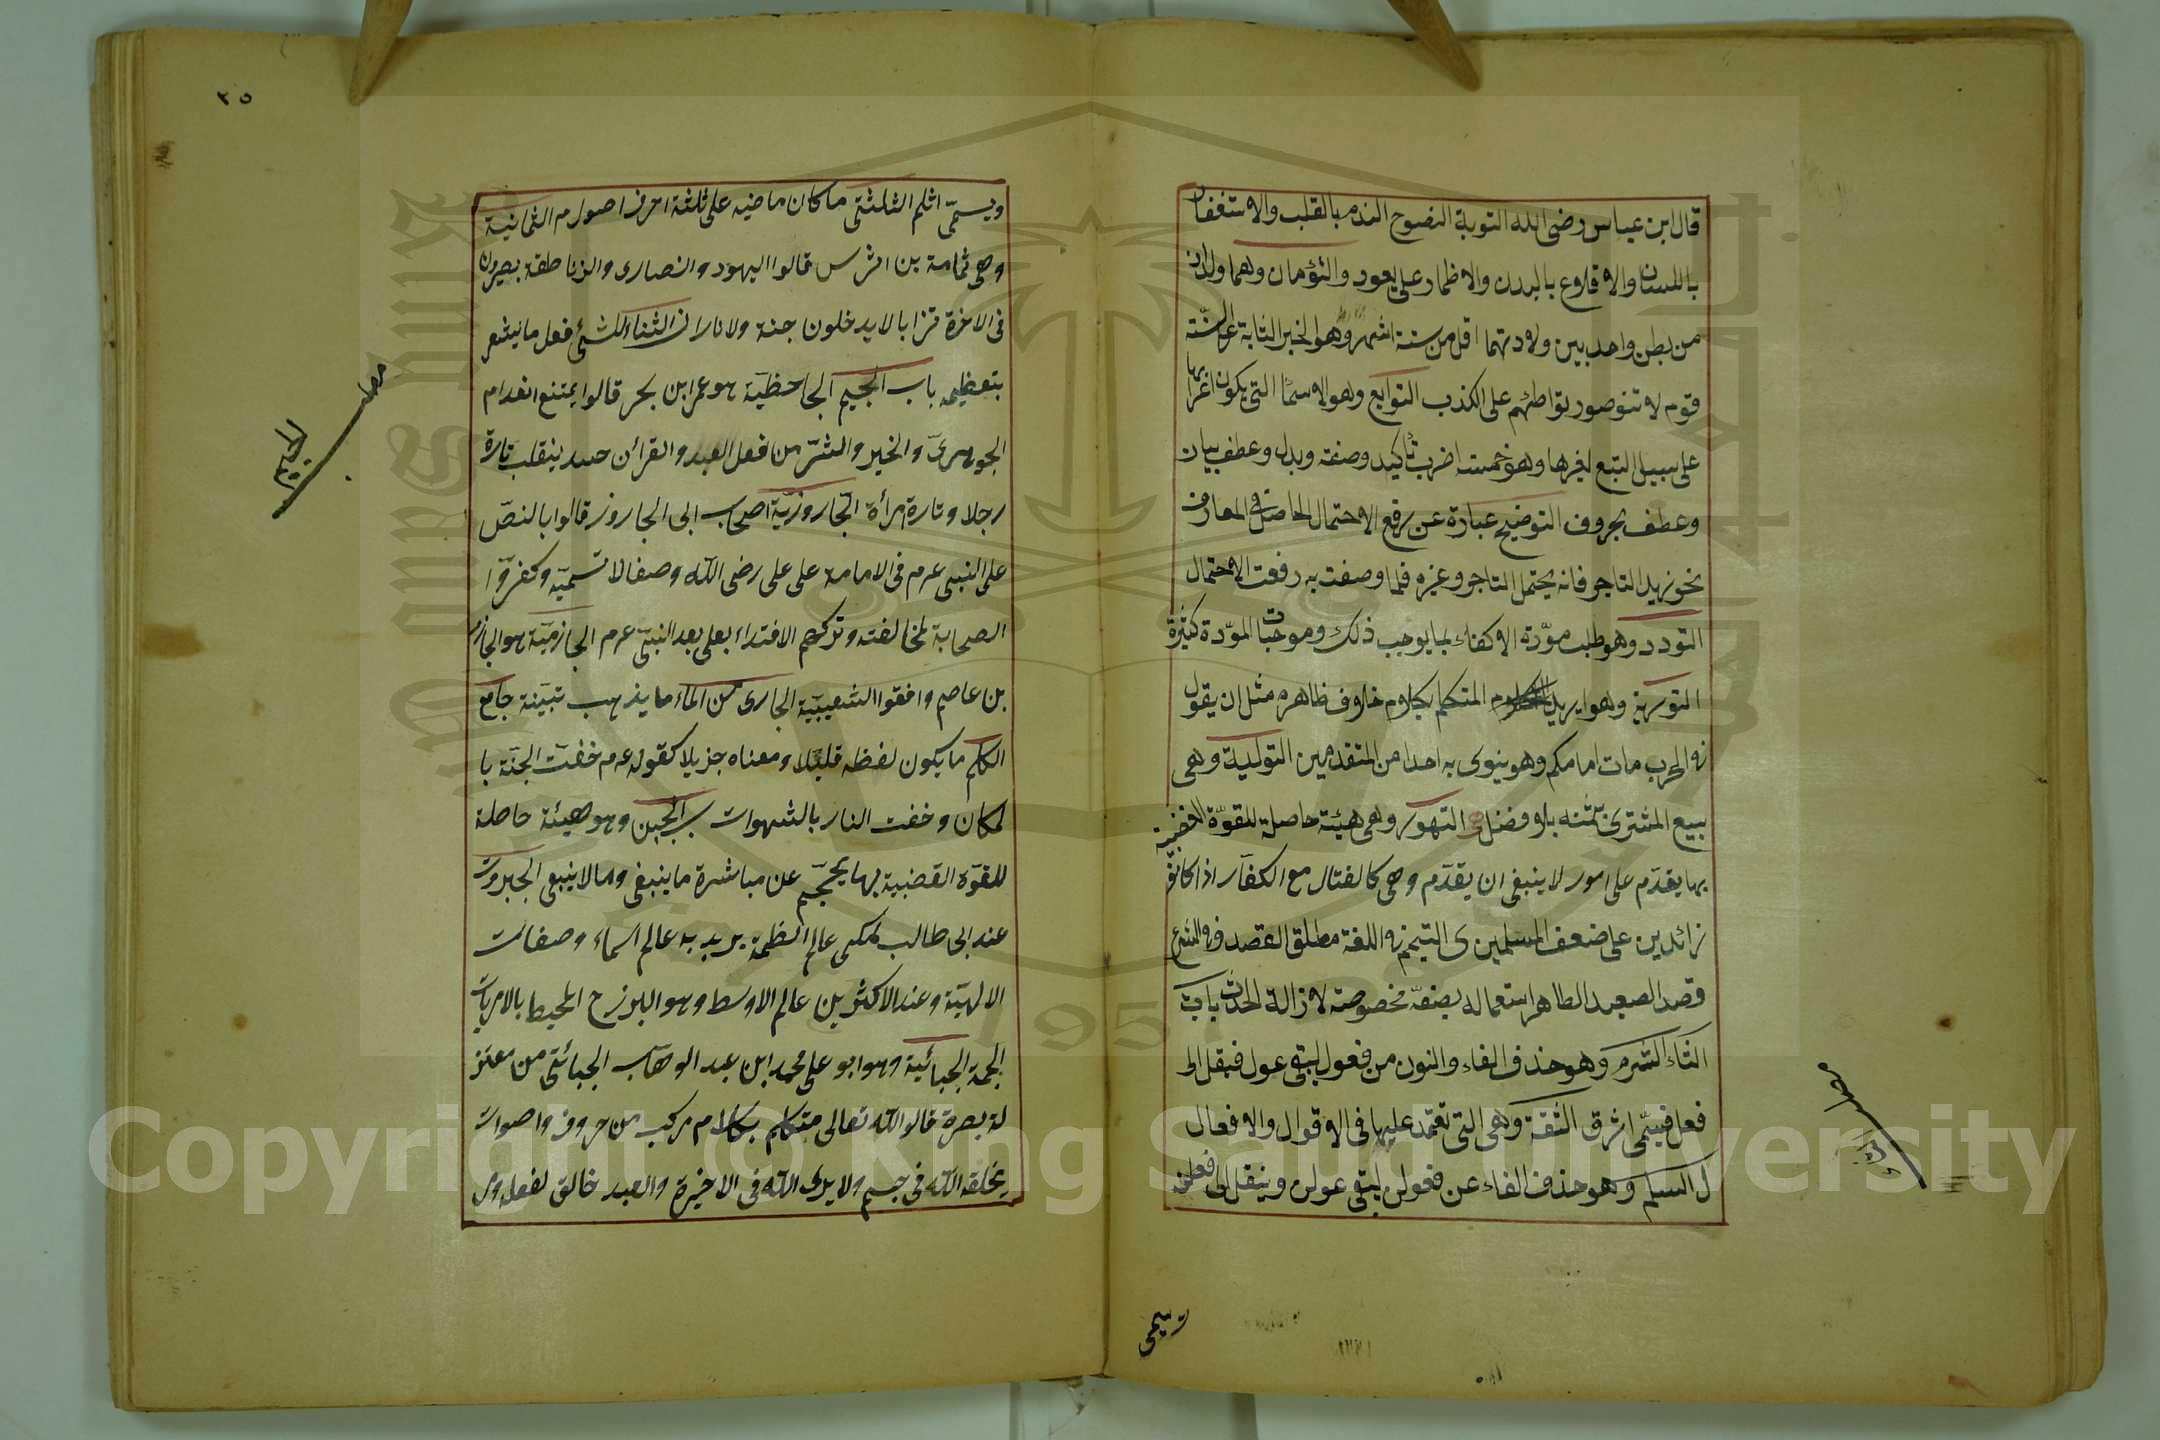 قال ابن عباس رضي الله التوبة النصوح الندم بالقلب والاستغفار
باللسان والاقلاع بالبدن والاظمار على يعود والتؤمان وهما ولدان
من بطن واحد بين ولادتهما اقل من ستة اشهر وهو الخبر الثابة على السنة
قوم لا تنوصور تواطئهم على الكذب التوابع وهو الاسما التى يكون اعرابها
على سبيل التبع لغيرها وهو خمسة اضرب تأكيد وصفة وبدل وعطف بيان
وعطف بحروف التوضيح عبارة عن رفع الاحتمال الحاصل فى المعارف
نحو زيد التاجر فانه يحتمل التاجر وغيره فلما وصفت به رفعت الاحتمال
التودد وهو طلب مودة الاكفاء بما يوجب ذلك وموجبات المودة كثيرة
التورية وهو ايريد المتكلم بكلام خلاف ظاهره مثل ان يقول
فى الحرب مات امامكم وهو ينوى به احدا من المتقدمين التولية وهى
بيع المشترى بثمنه بلا فضل التهور وهى هيئة حاصلة للقوة الغضبية
بها يقدم على امور لا ينبغى ان يقدم وهى كالقتال مع الكفار اذا كانوا
زائدين على ضعف المسلمين ى التيمم فى اللغة مطلق القصد وفى الشرع
قصد الصعيد الطاهر استعماله بصفة مخصوصة لازالة الحدث باب
الثاء الثرم وهو حذف الفاء والنون من فعول ليبقى عول فينقل الى
فعل فيسمى اثرق الثقة وهى التى تعتمد عليها فى الاقوال والافعال
ل السلم وهو حذف الفاء عن فعولن ليبقى عولن وينقل الى فعلن
ويسمى
٣٥
ويسمى اثلم الثلثى ما كان ماضيه على ثلثة احرف اصول م الثمانية
وهى ثمامة بن اشرس قالوا اليهود والنصارى والزناطقة يصيرون
فى الاخرة ترابا لا يدخلون جنة ولا نارا ن الثناء للشئ فعل ما يشعر
بتعظيمه باب الجيم الجاحظية هو عمر ابن بحر قالوا يمتنع انعدام
الجوهرى والخير والشر من فعل العبد والقرأن جسد ينقلب تارة
رجلا وتارة امرأة الجاروزية اصحاب ابى الجاروز قالوا بالنص
على النبى عرم فى الامامة على على رضى الله وصفا لا تسمية وكفروا
الصحابة لمخالفته وتركهم الاقتداء بعلى بعد النبى عرم الجازمية هو الجازم
بن عاصم وافقوا الشعيبية الجارى من الماء ما يذهب تبينة جامع
الكلم ما يكون لفظه قليلا ومعناه جزيلا كقوله عم م خفت الجنة با
لمكان وخفت النار بالشهوات ب الجبن وهو هيئة حاصلة
للقوة الغضبية بها يحجم عن مباشرة ما ينبغى وما لا ينبغى الجبروت
عند ابى طالب لمكى عالم العظمة يريد به عالم اسماء وصفات
الالهية وعند الاكثرين عالم الاوسط وهو البرزح المحيط بالامريات
الجمة الجبائية وهو ابو على محمد ابن عبد الوهاب الجبائى من معتز
لة بصرة قالوا الله تعالى متكلم بكلام مركب من حروف واصوات
يخلقه الله فى جسم ولا يرى الله فى الاخيرة والعبد خالق لفعله ول
Copyright © King Saud University
1957